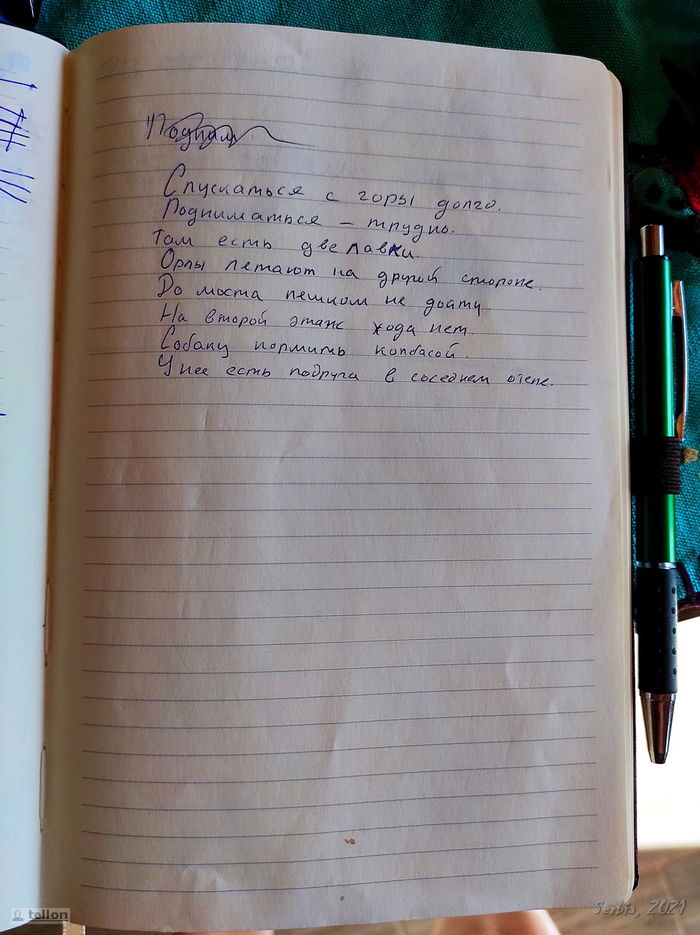 Подним
Спускаться с горы долго.
Подниматься – трудно.
Там есть две лавки.
Орлы летают на другой стороне.
До моста пешком не дойти.
На второй этаж хода нет.
Собаку кормить колбасой.
У нее есть подруга в соседнем отеле.
tollon
Serbia, 2021